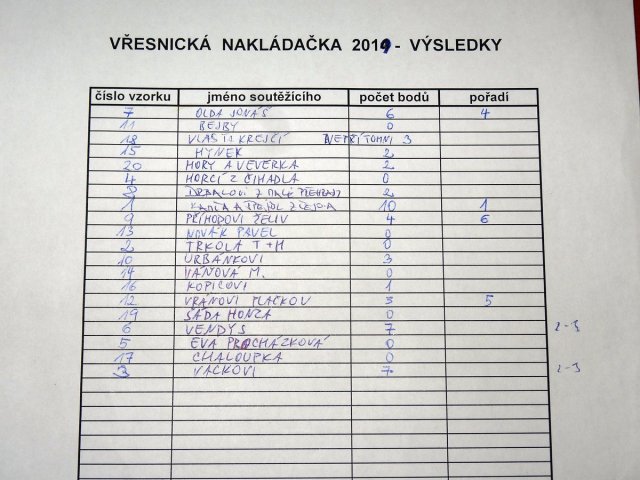 VŘESNICKÁ NAKLÁDAČKA 2019 - VÝSLEDKY
číslo vzorku jméno soutěžícího počet bodů pořadí
7 OLDA JONÁŠ 6 4
11 BEJBY 0
18 KREJČÍ NEPŘÍTOMNI 3
15 HYNEK 2
20 HORY A VEVERKA 2
4 HORCI Z ČIHADLA 0
8 Z MALÉ 2
1 10 1
9 PŘÍHODOVI ŽELIV 4 6
13 NOVÁK PAVEL 0
2 TRKOLA T+H 0
10 URBÁNKOVI 3
14 VÁŇOVÁ M. 0
16 KOPICOVI 1
12 VRÁNOVI PLAČKOV 3 5
19 SÁDA HONZA 0
6 VENDYS 7 2-3
5 EVA PROCHÁZKOVÁ 0
17 CHALOUPKA 0
3 VACKOVI 7 2-3